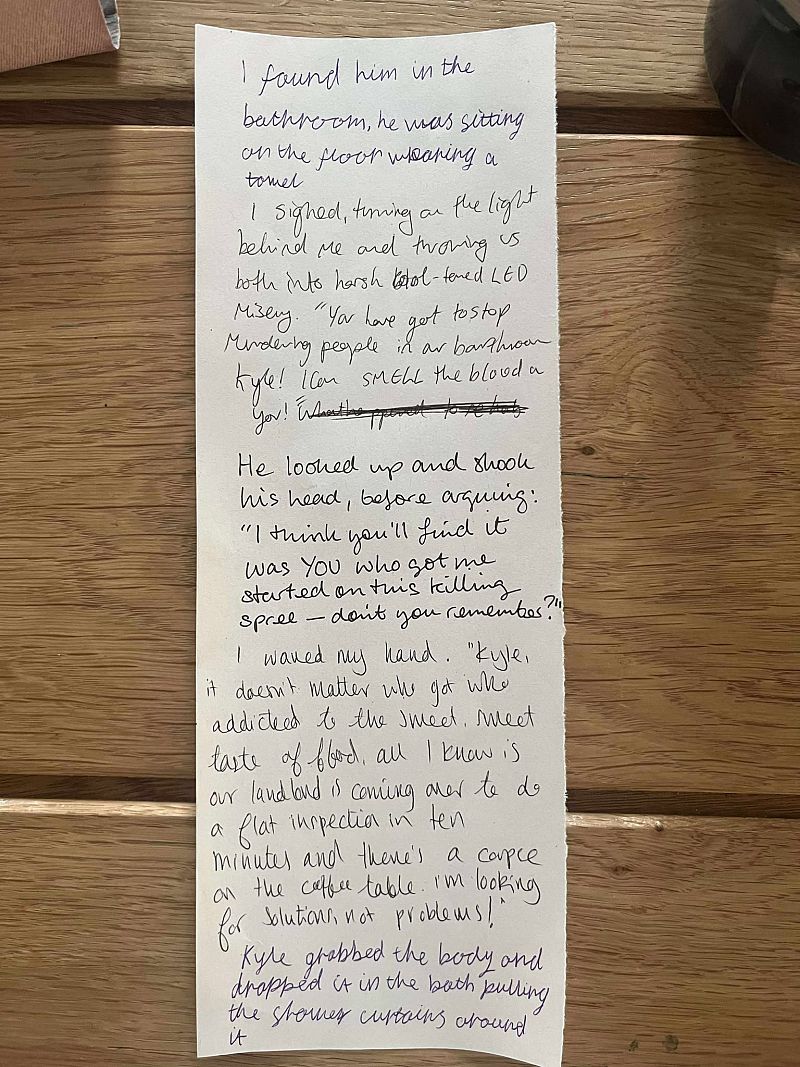 I found him in the
bathroom, he was sitting
on the floor wearing a
towel
I sighed, turning on the light
behind me and throwing us
both into harsh cool-toned LED
Misery. "You have got to stop
Murdering people in our bathroom
Kyle! I Can SMELL the blood on
you! "What happened to rehab
He looked up and shook
his head, before arguing:
"I think you'll find it
was YOU who got me
started on this killing
spree – don't you remember?"
I waved my hand. "Kyle,
it doesn't matter who got who
addicted to the sweet, sweet
taste of blood, all I know is
our landlord is coming over to do
a flat inspection in ten
minutes and there's a corpse
on the coffee table. I'm looking
for solutions, not problems!"
Kyle grabbed the body and
dropped it in the bath pulling
the shower curtains around
it